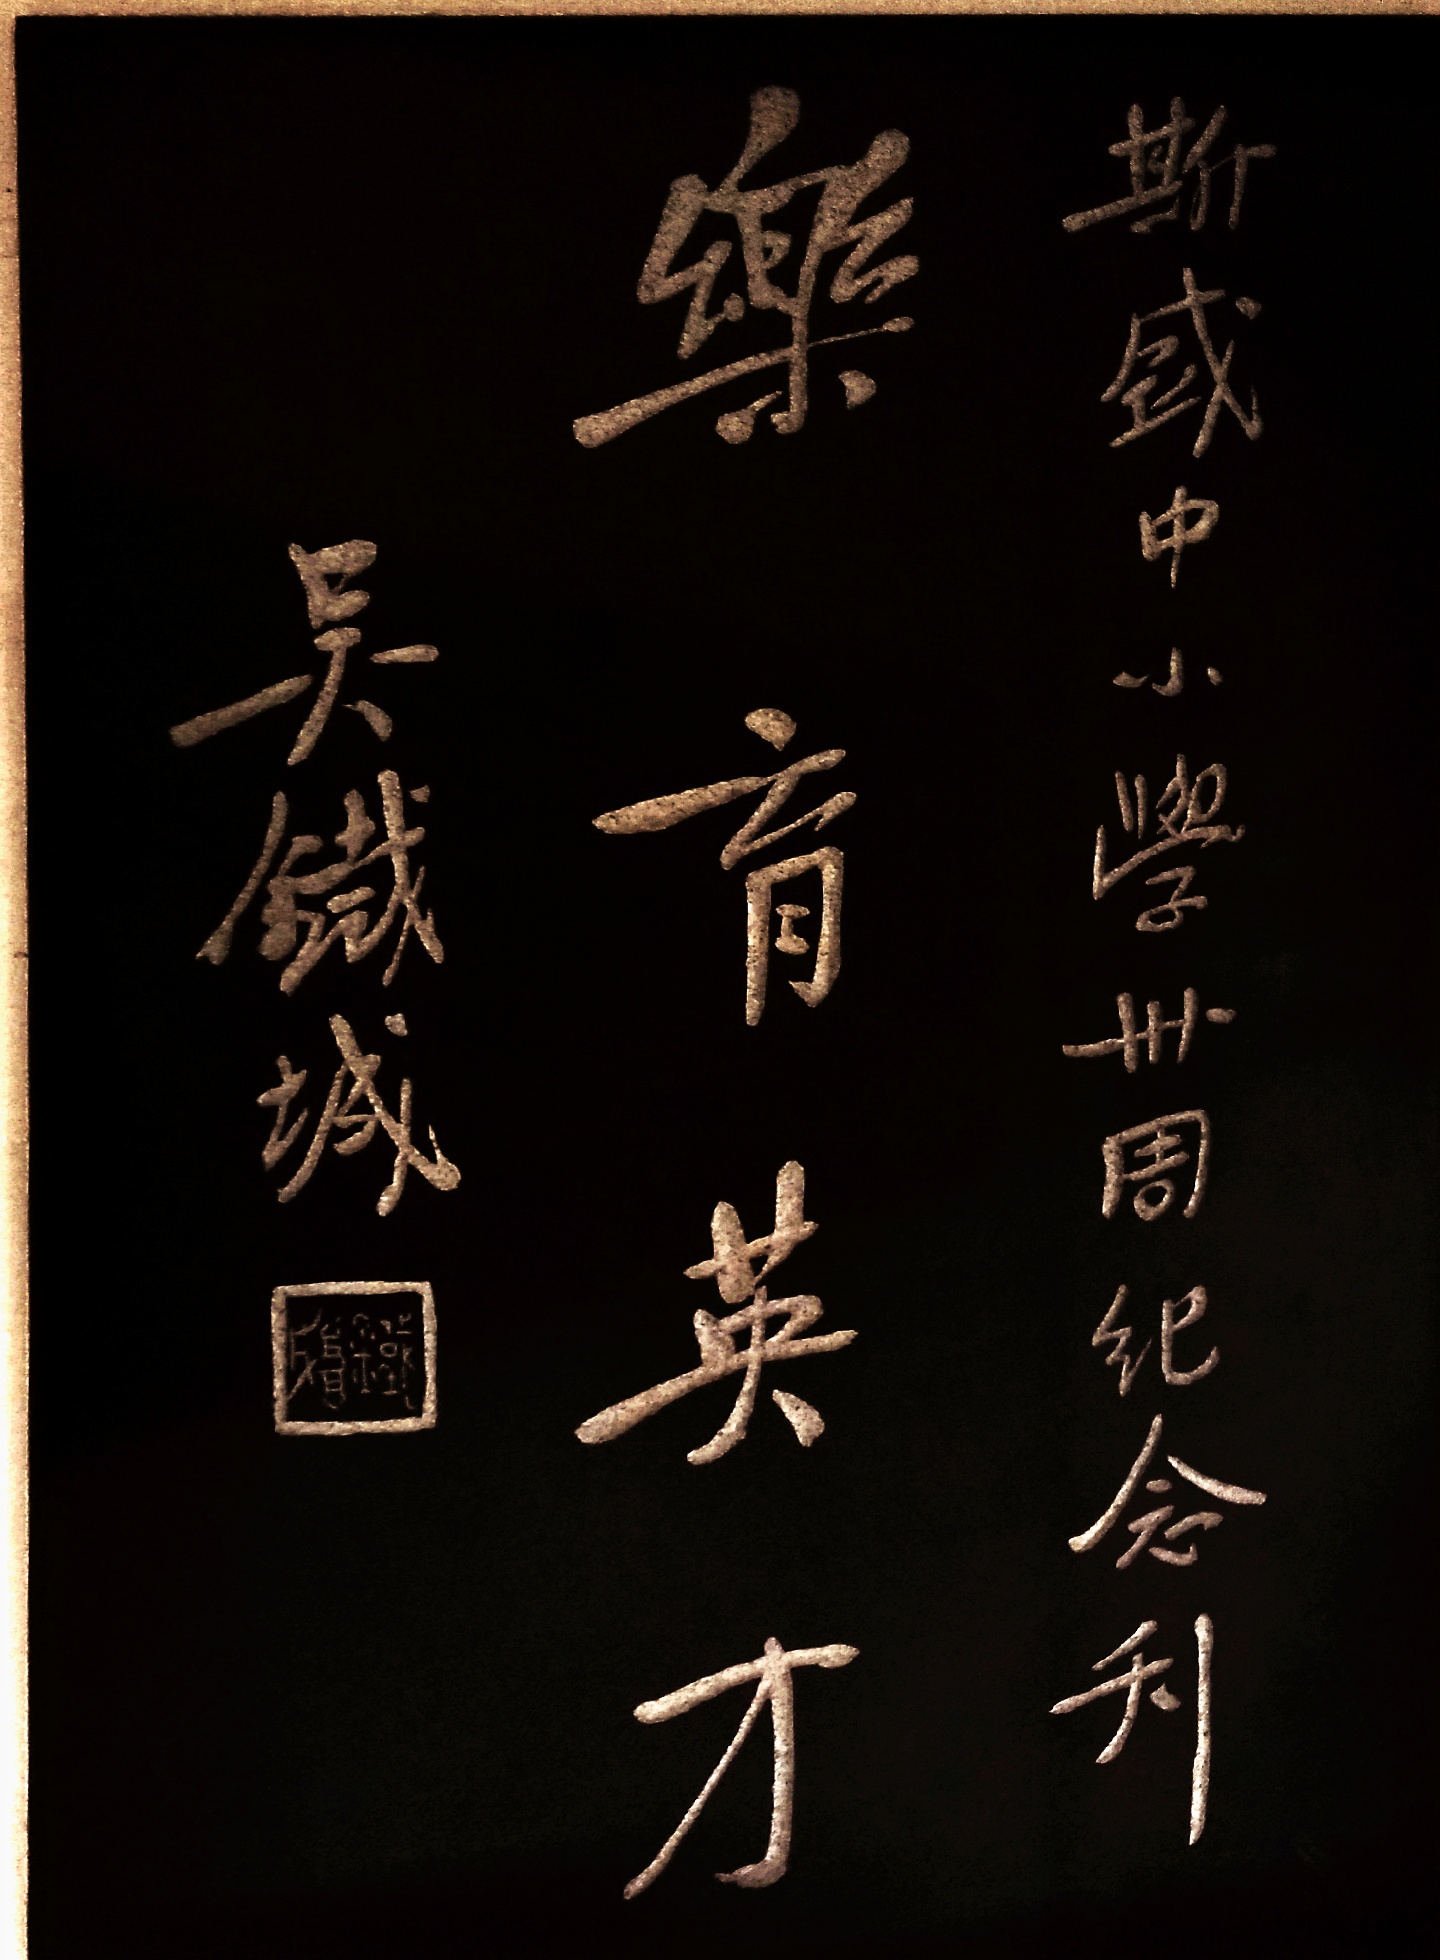 斯盛中小學卅周紀念刊
樂育英才
吳鐵城